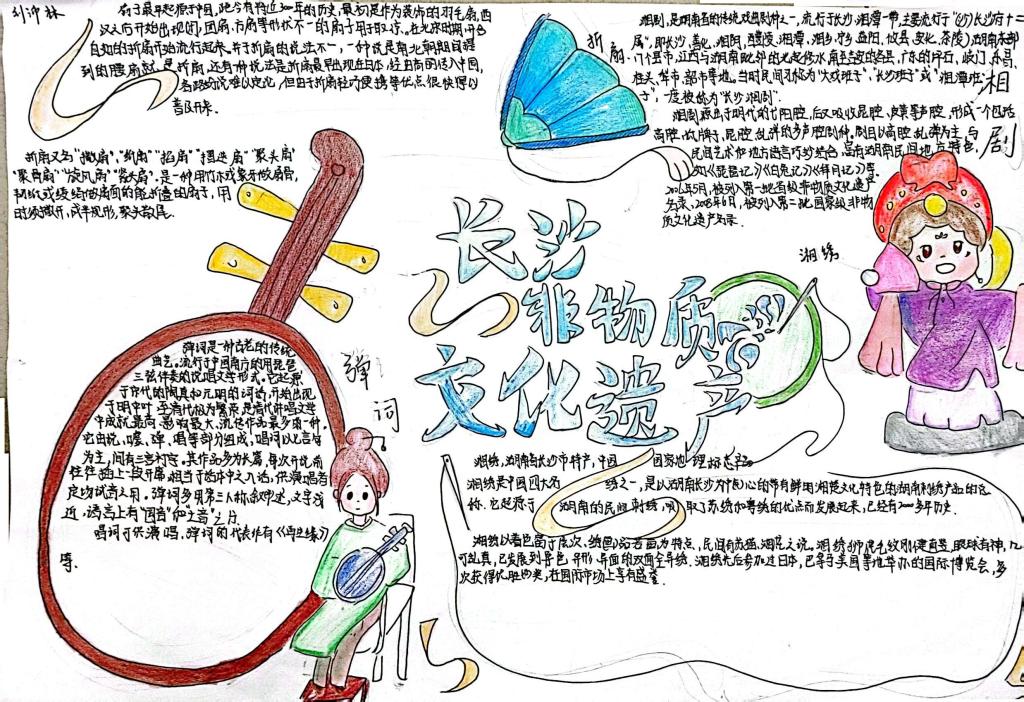 刘沛林
扇子最早起源于中国,距今有将近3000年的历史,最初是作为装饰的羽毛扇,西
汉以后开始出现
自如的折扇开始流行起来,关于折扇的说法不一,一种说是南北朝
到的腰扇就是折扇,还有一种说法是折扇最早出现在日本,经
各路的说难以定论,但由于折扇轻巧便携等优点很快得以
普及开来.
折扇又名"撒扇""
是一种用竹木或象牙做扇骨,
韧纸或绫绢做扇面的能折叠的扇子,用
时须撒开,成半规形,聚头散尾.
折
扇.
湘剧,是湖南省的传统戏曲剧种之一,流行于长沙、湘潭一带,主要流行于"
属",即长沙、善化、湘阴、醴陵、湘潭、湘乡、宁乡、益阳、攸县、安化、茶陵)湖南东部
当时民间习称为"大戏班子","长沙班子"或"湘潭班
子",一度被称为"长沙湘剧".
湘
剧
湘剧源出于明代的弋阳腔,后又吸收昆腔、皮黄等声腔,形成一个包括
高腔、低牌子、昆腔、乱弹的多声腔剧种.剧目以高腔、乱弹为主,与
民间艺术和地方语言巧妙结合,富有湖南民间地方特色.
《白兔记》《拜月记》等.
2006年5月,被列入第一批省级非物质文化遗产
名录.2008年6月,被列入第二批国家级非物
质文化遗产名录.
湘绣
长沙
非物质
文化遗产
弹
词
弹词是一种古老的传统
曲艺.流行于中国南方的用琵琶、
三弦伴奏的说唱文学形式.它起源
于宋代的陶真和元明的词话,开始出现
于明中叶,至清代极为繁荣,是清代讲唱文学
中成就最高、影响最大、流传作品最多的一种.
它由说、噱、弹、唱等部分组成,唱词以七言句
为主,间有三言衬字.其作品多为长篇,每次开说前
往往插上一段开篇,相当于话本中之入话,供演唱者
定场试音之用.弹词多用第三人称来叙述,文字浅
近,语言上有"国音"和"土音"之分.
唱词于供演唱,弹词的代表作有《再生缘》
等.
湘绣,湖南省长沙市特产,中国 国家地理标志产品
湘绣是中国四大名 绣之一,是以湖南长沙为中心的带有鲜明湘楚文化特色的湖南刺绣产品的总
称.它起源于 湖南的民间刺绣, 取了苏绣和粤绣的优点而发展起来,已经有2000多年历史.
湘绣以着色富于层次、绣品若画为特点,民间有苏猫、湘虎之说.湘绣狮虎毛纹刚健直竖,眼球有神,几
可乱真,已发展到异色、异形、异面的双面全异绣.湘绣先后参加过日本、巴拿马、美国等地举办的国际博览会,多
次获得优胜的奖,在国际市场上享有盛誉.